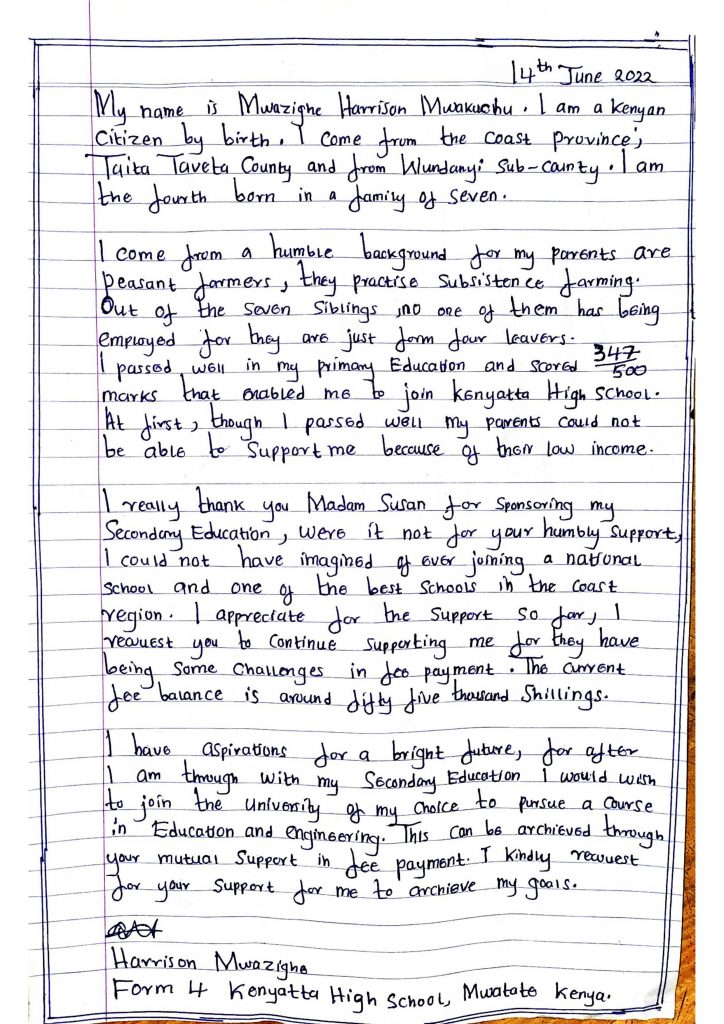 14th June 2022
My name is Mwazighe Harrison Mwakuchu. I am a Kenyan
Citizen by birth. I come from the coast province,
Taita Taveta County and from Wundanyi Sub-county. I am
the fourth born in a family of seven.
I come from a humble background for my parents are
peasant farmers, they practise subsistence farming.
Out of the seven siblings, no one of them has being
employed for they are just form four leavers.
I passed well in my primary Education and scored 347/500
marks that enabled me to join Kenyatta High School.
At first, though I passed well my parents could not
be able to support me because of their low income.
I really thank you Madam Susan for sponsoring my
Secondary Education, were it not for your humbly support,
I could not have imagined of ever joining a national
school and one of the best schools in the coast
region. I appreciate for the support so far, I
reuest you to continue supporting me for they have
being some challenges in fee payment. The current
fee balance is around fifty five thousand shillings.
I have aspirations for a bright future, for after
I am through with my Secondary Education I would wish
to join the University of my choice to pursue a course
in Education and engineering. This can be archieved through
your mutual support in fee payment. I kindly reuest
for your support for me to archieve my goals.
Harrison Mwazighe
Form 4 Kenyatta High School, Mwatate Kenya.